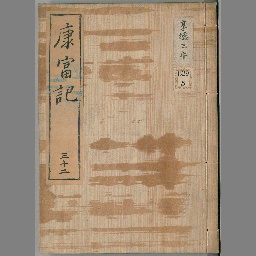 康富記
三十二
享徳三年
129